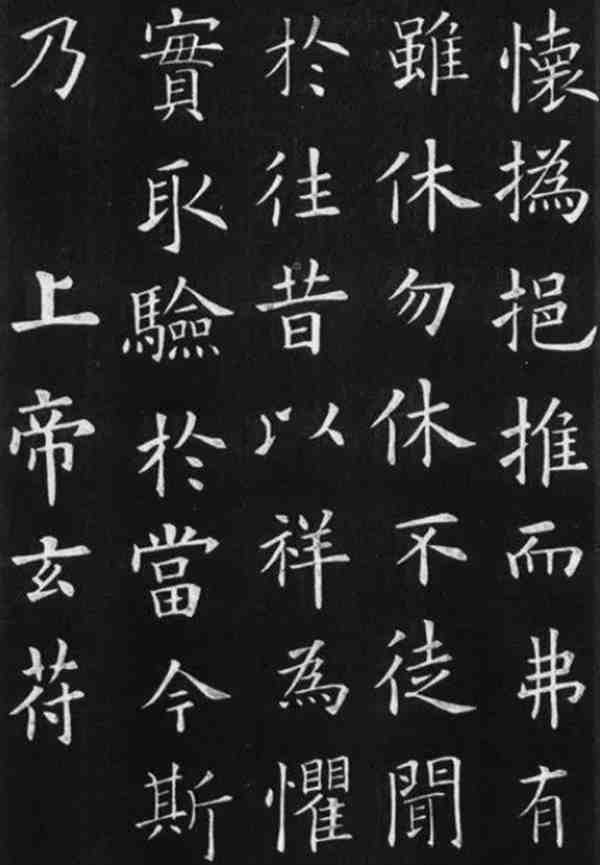 懷撝挹推而弗有
雖休勿休不徒聞
於往昔以祥為懼
實取驗於當今斯
乃上帝玄符